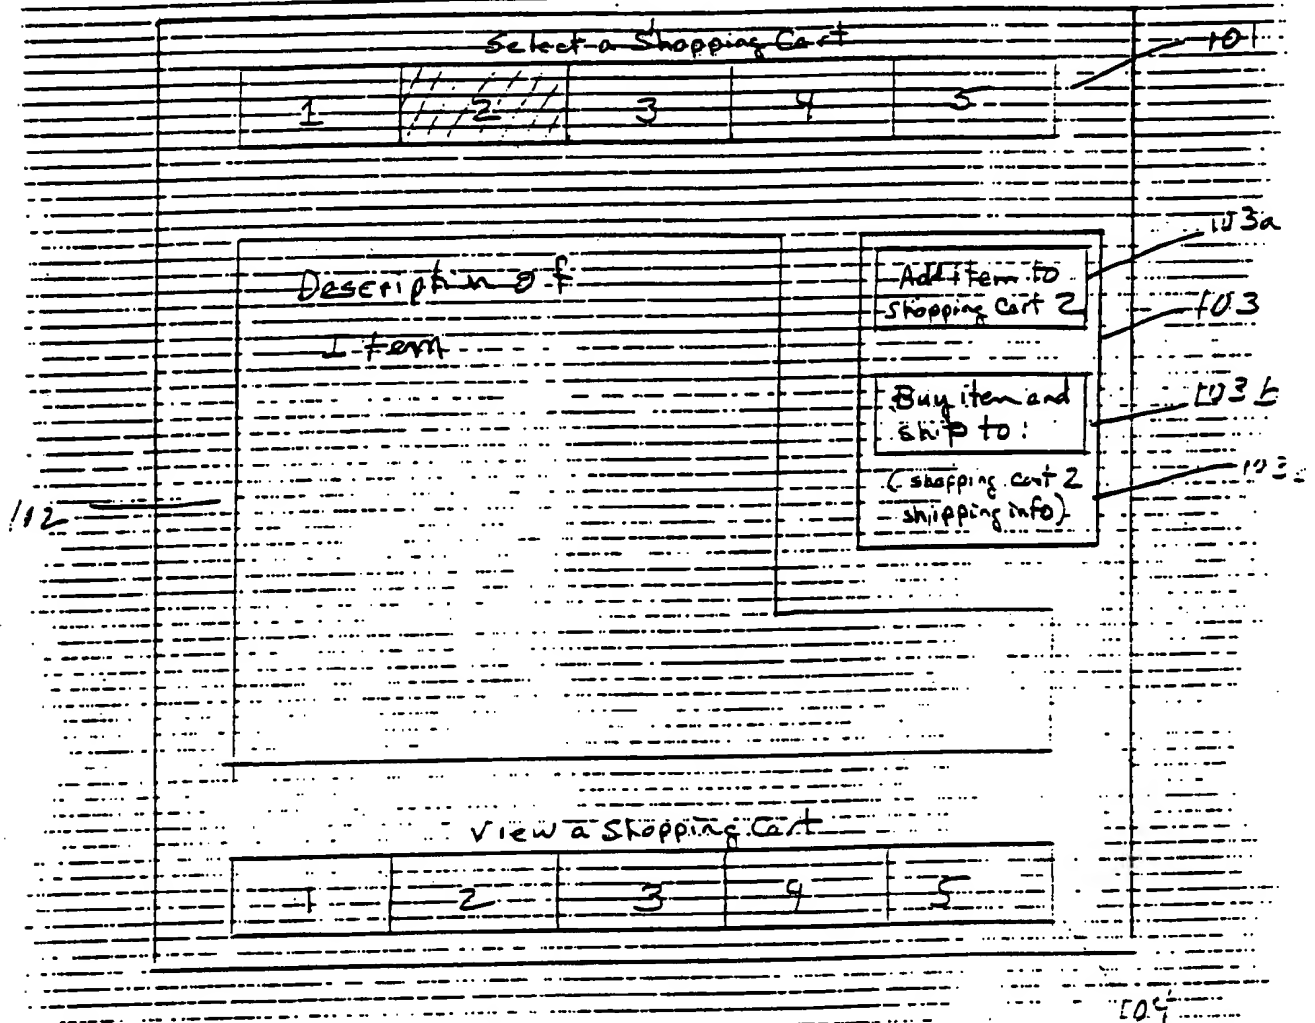 Select a Shopping Cart
101
1 2 3 4 5
103a
Description of
Item
Add item to
shopping cart 2
103
Buy item and
ship to:
103b
(shopping cart 2
shipping info)
102
View a Shopping Cart
1 2 3 4 5
104